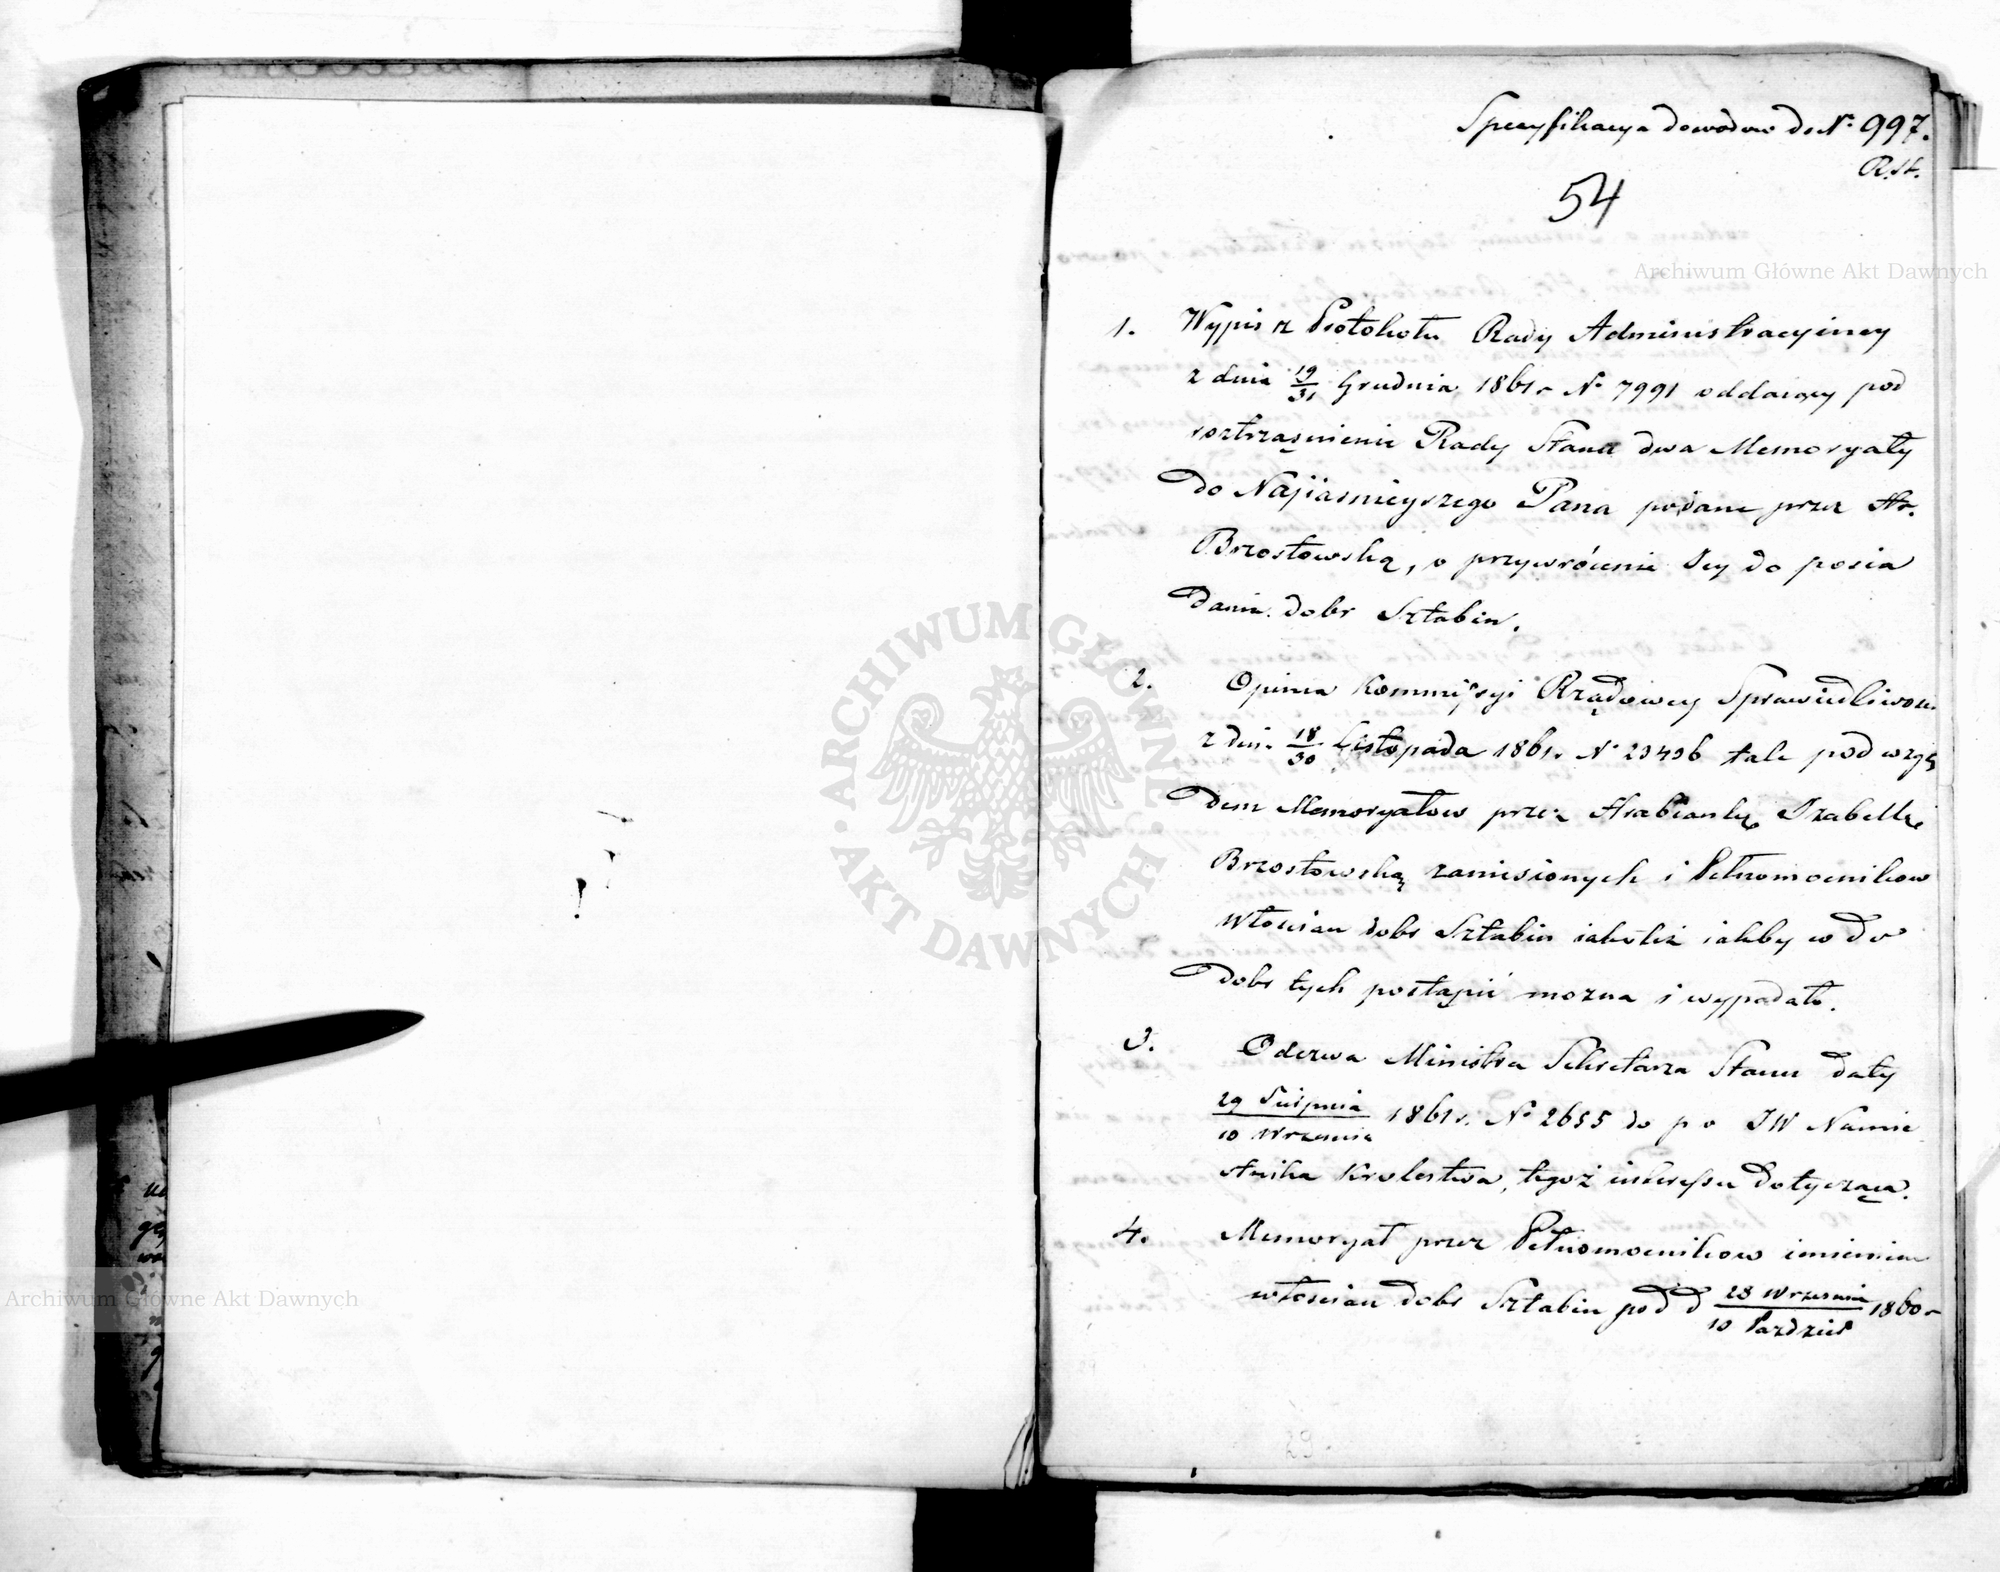 Specyfikacya dowodow do N° 997.
R.St.
54
Archiwum Główne Akt Dawnych
1. Wypis z Protokołu Rady Administracyiney
z dnia 19/31 Grudnia 1861 r N° 7991 oddaiący pod
roztrząśnienie Rady Stanu dwa Memoryały
do Najiaśnieyszego Pana podane przez Hr.
Brzostowską, o przywrócenie Jey do posia
dania dobr Sztabin.
2. Opinia Kommissyi Rządowey Sprawiedliwości
z dnia 18/30 Listopada 1861 r N° 23496 tak pod wzglę
dem Memoryałow przez Hrabiankę Izabellę
Brzostowską zaniesionych i Pełnomocnikow
Włościan dobr Sztabin iakoteż iakby w do
dobr tych postąpić można i wypadało.
3. Odezwa Ministra Sekretarza Stanu daty
29 Sierpnia/10 Września 1861 r. N° 2655 do p o JW Namie
stnika Krolestwa, tegoż interessu dotycząca.
4. Memoryał przez Pełnomocnikow imieniem
włościan dobr Sztabin pod d 28 Września/10 Paździer 1860 r
29
ARCHIWUM GŁÓWNE AKT DAWNYCH
Archiwum Główne Akt Dawnych